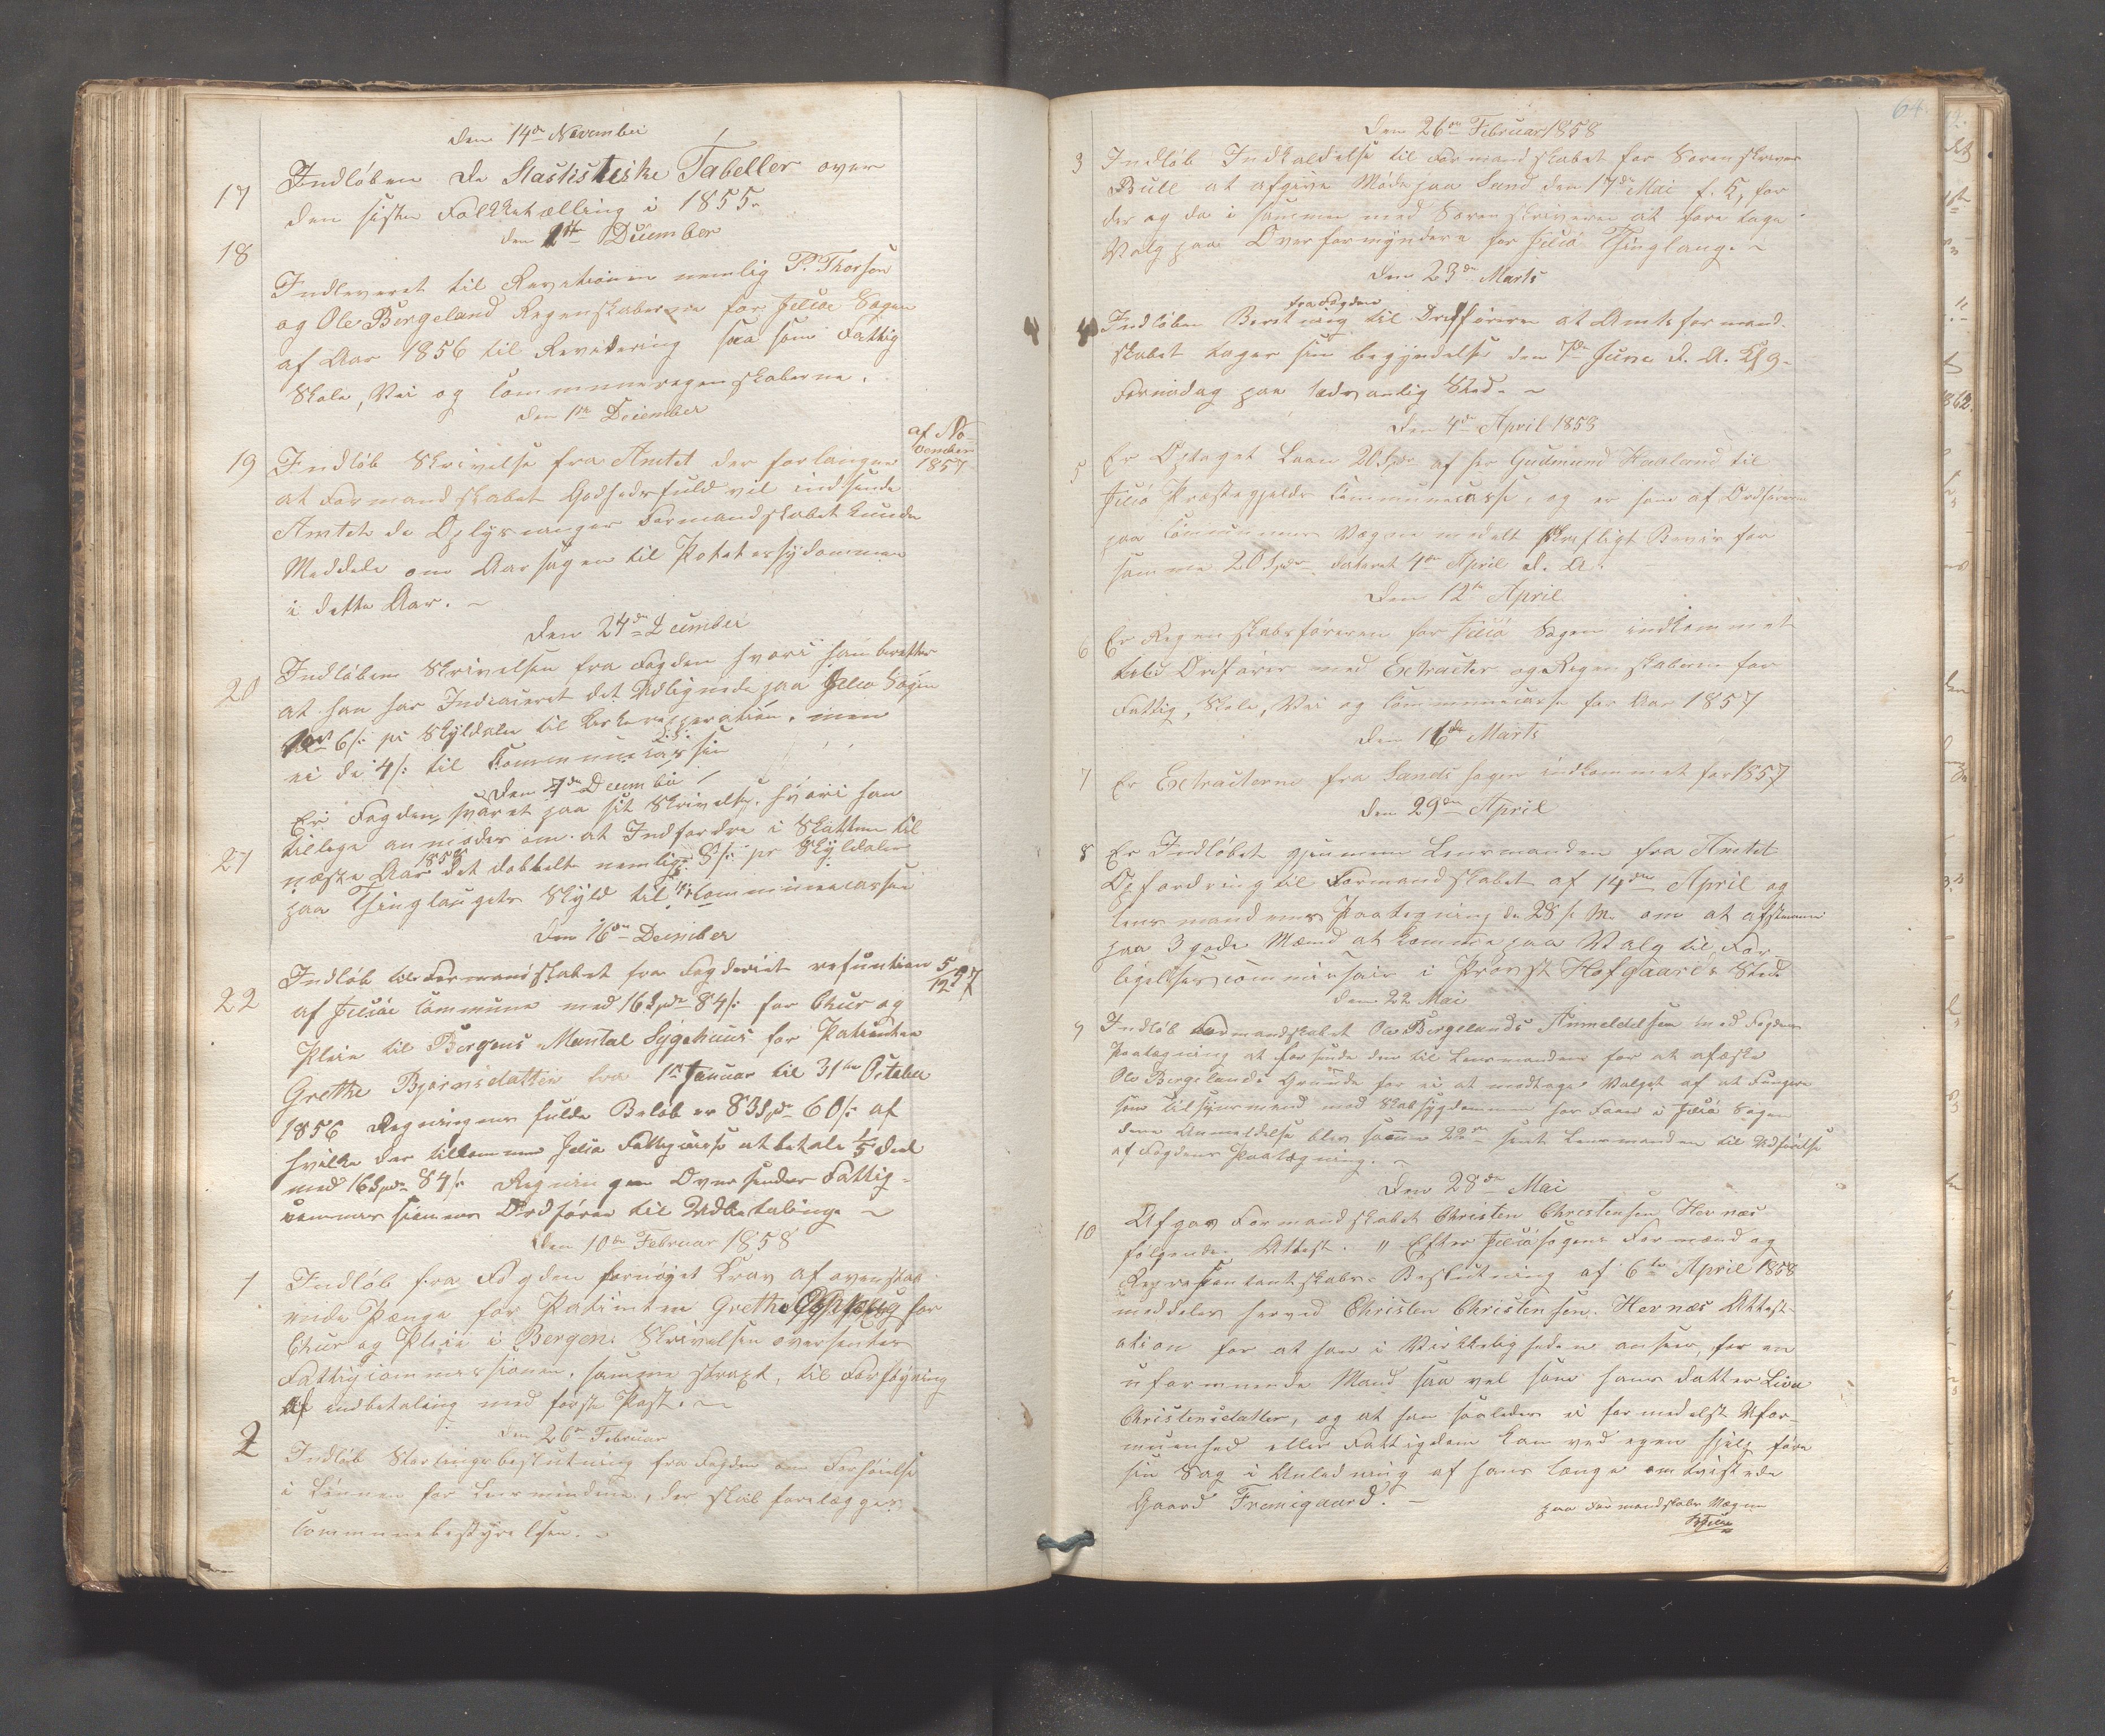 den 14de November
17 Indløben de Stastistiske Tabeller over
den siste Folkketælling i 1855.
den 1ste December
18
Indleveret til Revitionen nemlig P. Thorsen
og Ole Bergeland Regenskaberne for Jelsøe Sogn
af Aar 1856 til Revedering saa som Fattig
Skole, Vei og Communeregenskaberne.
den 1ste December
19 Indløb Skrivelse fra Amtet der forlanger
af November 1857
at Formandskabet Godhedsfuld vil indsende
Amtet de Oplysninger Formandskabet kunde
Meddele om Aarsagen til Potetessydommen
i dette Aar. ~
Den 24de December
20 Indløben Skrivelsen fra Fogden hvori han beretter
at han har Indcaseret det Udlignede paa Jelsø Sogn
6 s: pr Skyldaler til Kirkereperation, men
ei de 4 s: til Communecassen
Den 7de December
21 Er Fogden svaret paa sit Skrivelse, hvori han
tillige anmodes om at Indfordre i Skatten til
næste Aar 1858 det dobbelte nemlig 8 s: pr Skyldaler
paa Thinglaugets Skyld til Communecassen
Den 16de December
22 Indløb til Formandskabet fra Fogderiet refuntion 5/12 57
af Jelsøe Commune med 16 Spd 84 s: for Chur og
Pleie til Bergens Mental Sygehuus for Patienten
Grethe Bjørnsdatter fra 1ste Januar til 31te October
1856 Regningens fulde Beløb er 83 Spd 60 s: af
hvilke der tilkommer Jelsø Fattigcasse at betale 1/5 deel
med 16 Spd 84 s: Regningen Oversendes Fattig-
commissionens Ordfører til Udbetalinge ~
Den 10de Februar 1858
1 Indløb fra Fogden fornøyet Krav af ovenstaa-
ende Penge for Patienten Grethe for
Chur og Pleie i Bergen. Skrivelsen oversentes
Fattigcommissionen, samme strapt, til Forføyning
af indbetaling med første Post. ~
Den 26de Februar
2 Indløb Stortingsbeslutning fra Fogden om Forhøielse
i Lønnen for Lensmændene, der skal forelægges
Communebestyrelsen. ~
64
Den 26de Februar 1858
3 Indløb Indkaldelse til Formandskabet fra Sorenskriver
Bull at afgive Møde paa Sand den 17de Mai f. K, for
der og da i sammen med Sorenskriveren at foretage
Valg paa Overformyndere for Jelsø Thinglaug. ~
Den 23de Marts
4 Indløben Beretning fra Fogden til Ordføreren at Amtsformand-
skabet tager sin begyndelse den 7de June d. A. Kl 9
Formidag paa sædvanlig Sted. ~
Den 4de April 1858
5 Er Optaget Laan 20 Spd af hr Gudmund Haaland til
Jelsø Præstegjelds Communecasse, og er han af Ordføreren
paa Communens Vegne medelt skrefligt Bevis for
samme 20 Spdr dateret 4de April d. A.
Den 12te April
6 Er Regenskabsføreren for Jelsø Sogn indkommet
til Ordfører med Extracter og Regenskaberne for
Fattig, Skole, Vei og Communecasse for Aar 1857
Den 16de Marts
7 Er Extracterne fra Sands Sogn indkommet for 1857
Den 29de April
8 Er Indløbet gjennem Lensmanden fra Amtet
Opfordring til Formandskabet af 14de April og
lensmandens Paategning de 28 s. M. om at afstemme
paa 3 gode Mænd at komme paa Valg til For-
ligelsescommissair i Provst Hofgaards Sted
den 22 Mai
9 Indløb Formandskabet Ole Bergelands Anmeldelsen med Fogdens
Paategning at forsende den til Lensmanden for at afæske
Ole Bergelands Grunde for ei at modtage Valget af at Fungere
som Tilsynsmand med Skabsygdommen for Faar i Jelsø Sogn
denne Anmeldelse blev samme 22de sent Lensmanden til Udførelse
af Fogdens Paategning. ~
Den 28de Mai
10 Afgav Formandskabet Christen Christensen Hevnæs
følgende Attest. " Efter Jelsø sogns Formænd og
Repræsentantskabs-Beslutning af 6te April 1858
meddeles herved Christen Christensen Hevnæs Attest-
ation for at han i Virkkeligheden ansees, for en
uformuende Mand saa vel som hans datter Liva
Christensdatter, og at han saaledes ei formedelst Ufor-
muenhed eller Fattigdom kan ved egen hjelp føre
sin Sag i Anledning af hans længe omtvistede
Gaard Fremigaard. ~
paa Formandskabs Vægne